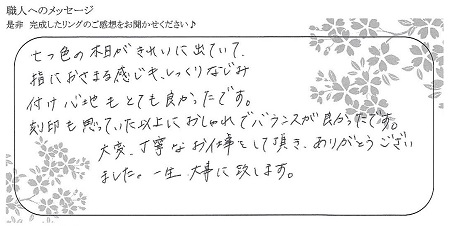 職人へのメッセージ
是非 完成したリングのご感想をお聞かせください♪
七つ色の木目がきれいに出ていて、
指におさまる感じも、しっくりなじみ
付け心地もとても良かったです。
刻印も思っていた以上におしゃれでバランスが良かったです。
大変、丁寧なお仕事をして頂き、ありがとうござい
ました。一生大事に致します。